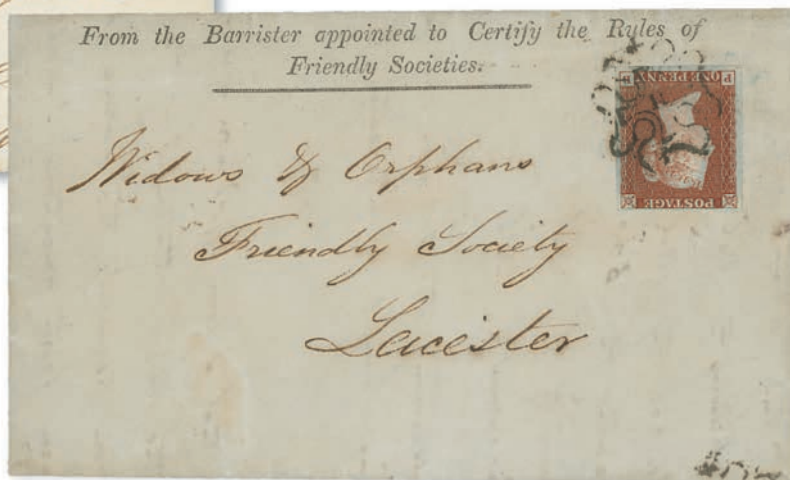 From the Barrister appointed to Certify the Rules of
Friendly Societies.
Widows & Orphans
Friendly Society
Leicester
POSTAGE
ONE PENNY